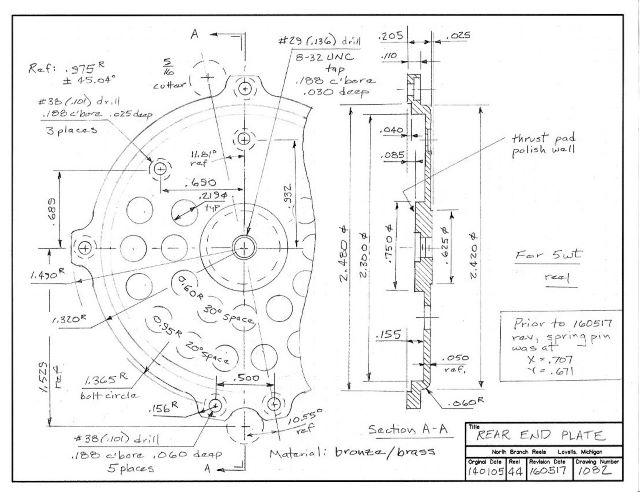 A
#29 (.136) drill
8-32 UNC
tap
.188 c'bore
.030 deep
.205
.025
.110
Ref: .975 R
± 45.04°
5/16
cutter
#38 (.101) drill
.188 c'bore .025 deep
3 places
11.81°
ref
.040
.085
thrust pad
polish wall
.690
.219 ⌀
typ.
.932
.689
2.480 ⌀
2.300 ⌀
.750 ⌀
.625 ⌀
2.420 ⌀
For 5wt
reel
1.490 R
1.320 R
0.60 R
30° space
0.95 R
20° space
1.529
ref
Prior to 160517
rev, spring pin
was at
X = .707
Y = .671
.155
.050
ref.
.060 R
1.365 R
bolt circle
.500
.156 R
10.55°
ref
Section A-A
#38 (.101) drill
.188 c'bore .060 deep
5 places
A
Material: bronze/brass
Title
REAR END PLATE
North Branch Reels Lovells, Michigan
Orginal Date Reel Revision Date Drawing Number
140105 44 160517 1082